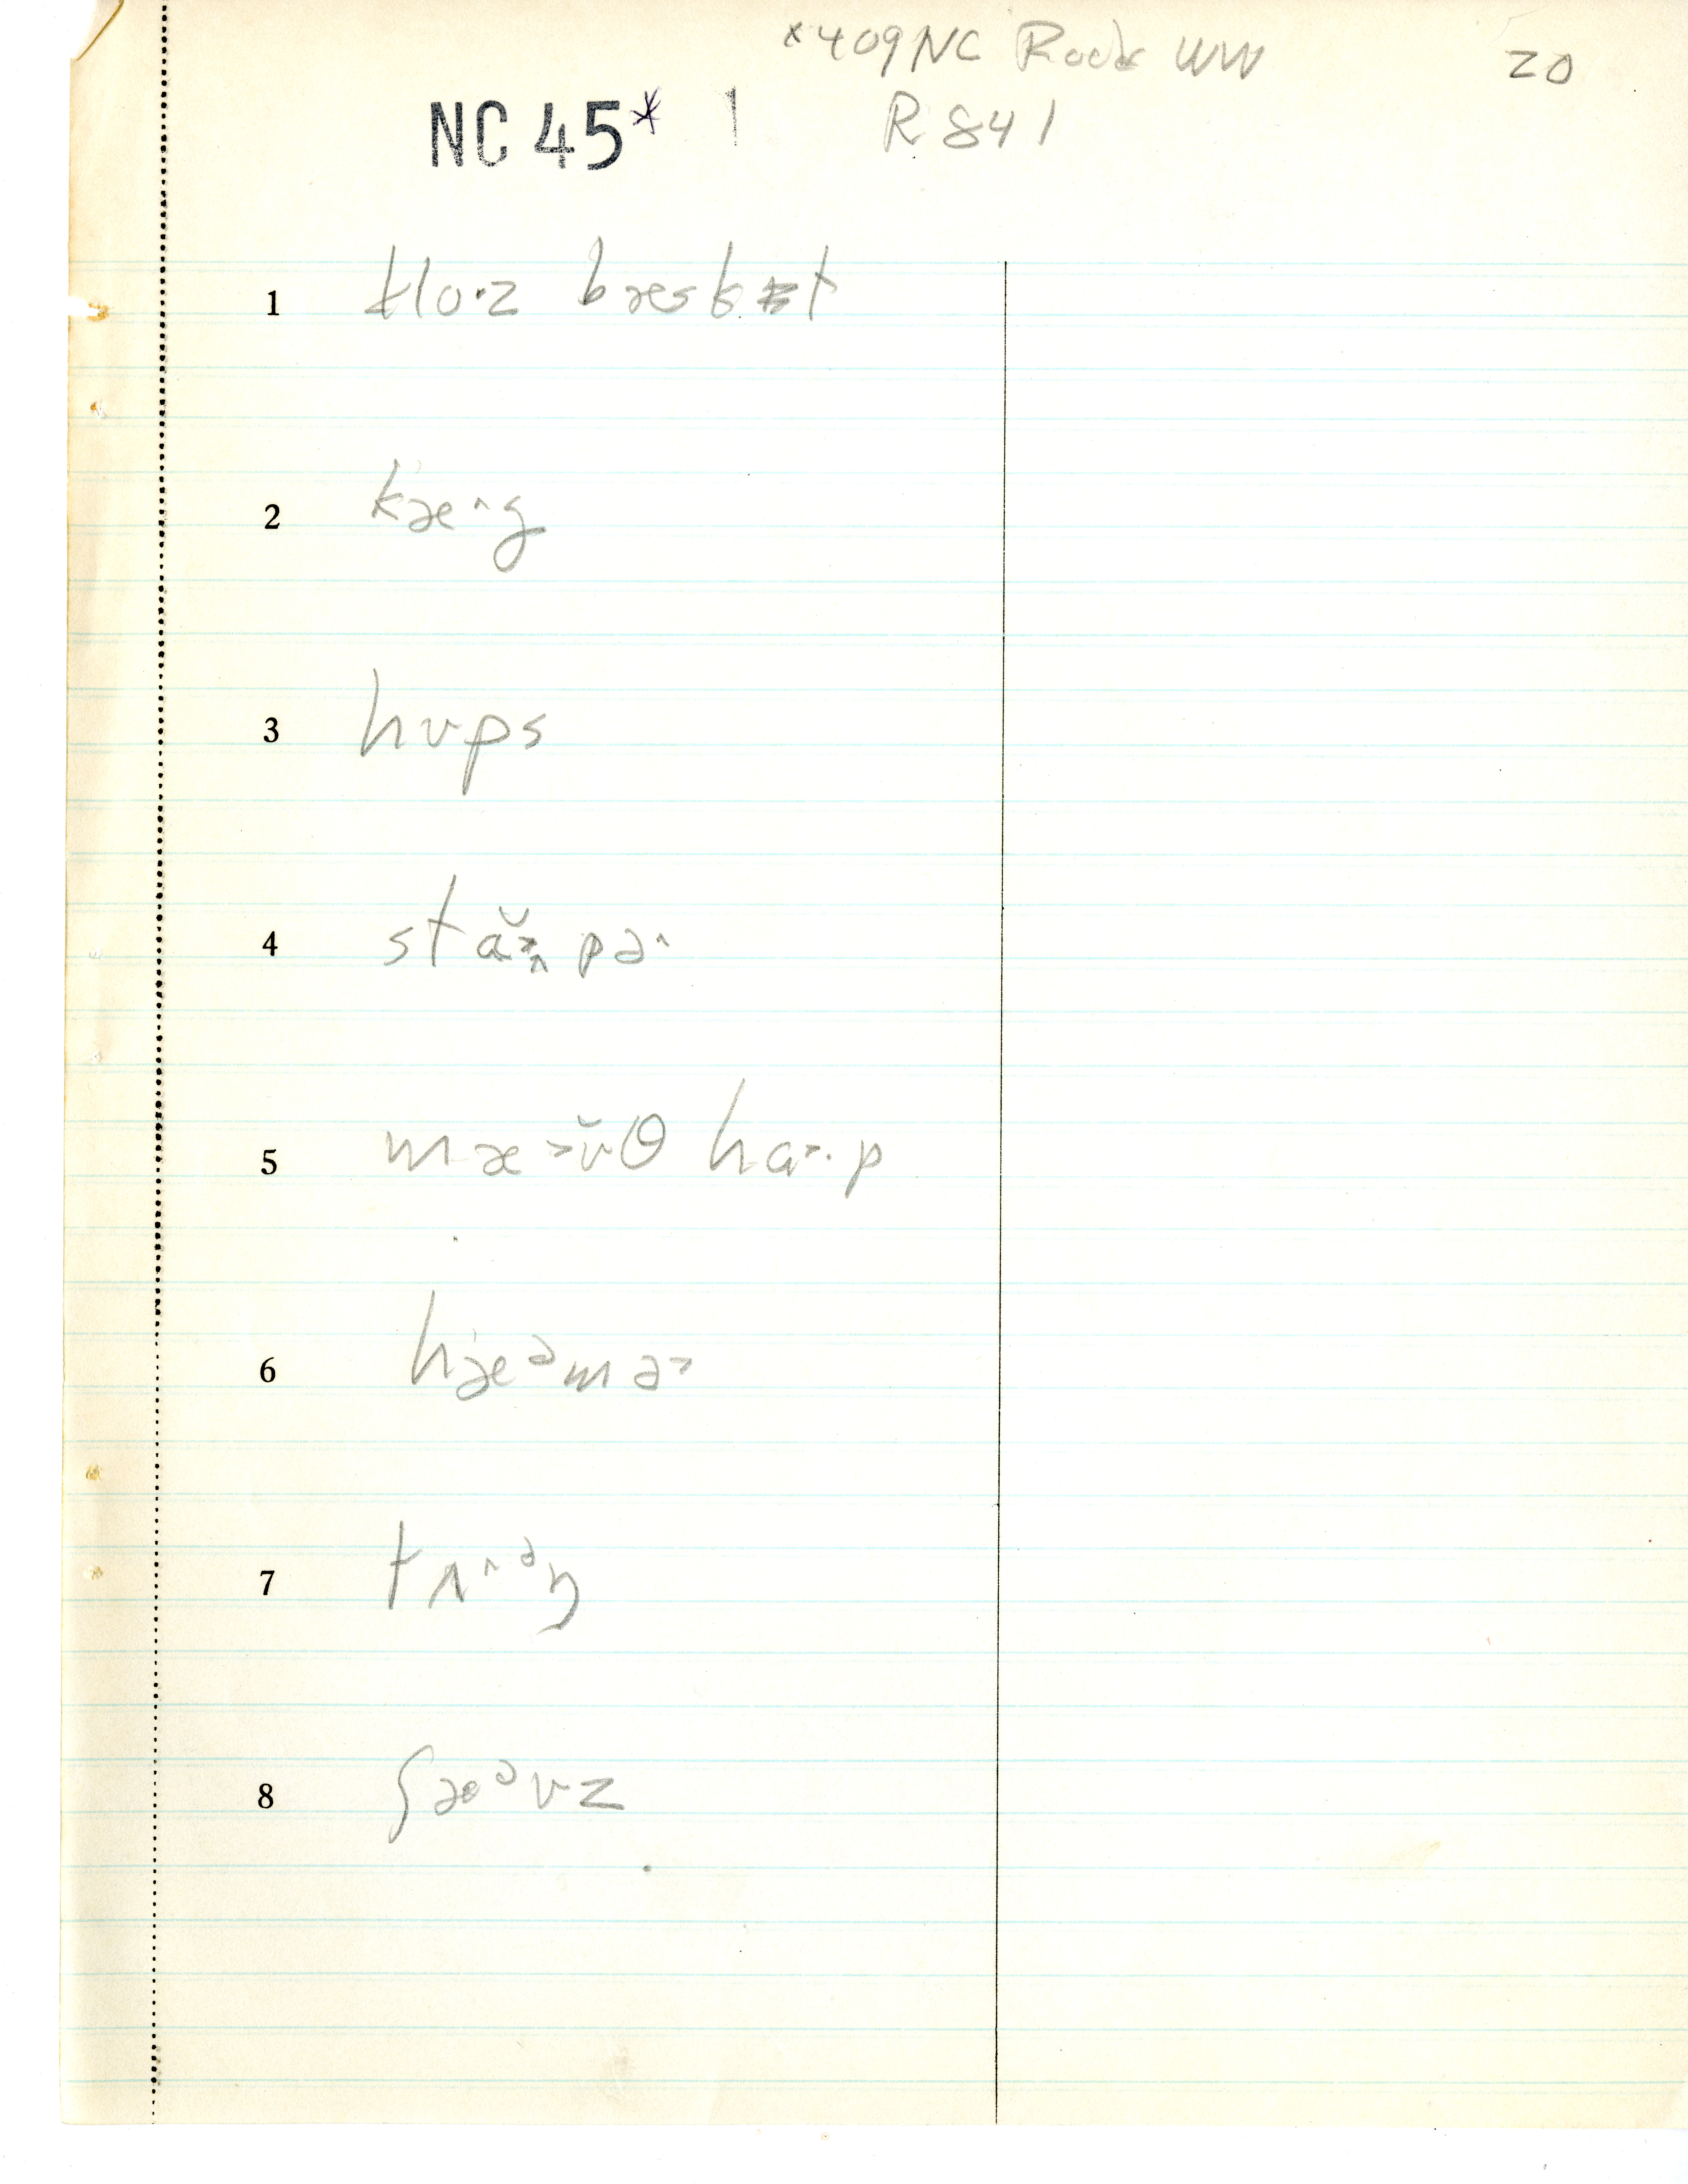 *409 NC Rock WW 20
NC 45* 1 R 841
1 klo·z bæsk t
2 kæ^g
3 hʊps
4 stɑ̆>ʌ pə^
5 mæ>ʊ̆θ hɑ>·p
6 hæᵊmə>
7 tʌ^ᵊŋ
8 ʃæᵊvz